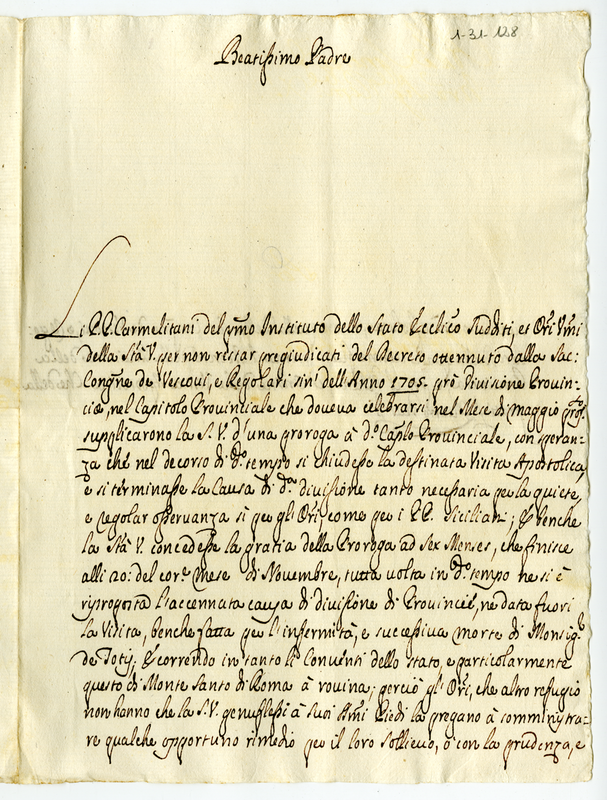 1-31-128
Beatissimo Padre
Li P.P. Carmelitani del pmo Instituto dello Stato Ecclico sudditi, et Ori Vmi
della Stà V. per non restar pregiudicati del Decreto ottennuto dalla Sac:
Congne de Vescovi, e Regolari sin' dell'Anno 1705. prò Divisione Provin-
ciæ, nel Capitolo Provinciale che doveva celebrarsi nel Mese di Maggio
supplicarono la S. V. d'una proroga à do. Caplo Provinciale, con speran-
za che nel decorso di do. tempo si chiudesse la destinata Visita Apostolica,
e si terminasse la Causa di da. divisione tanto necessaria per la quiete,
e regolar osservanza sì per gl'Ori, come per i P.P. Siciliani; E benche
la Stà V. concedesse la gratia della Proroga ad sex Menses, che finisce
alli 20: del core. Mese di Novembre, tutta volta in do. tempo ne si è
riproposta l'accennata causa di divisione di Provincie, ne data fuori
la Visita, benche fatta per l'infermità, e successiva morte di Monsigr.
de Totij; E correndo in tanto li Conventi dello stato, e particolarmente
questo di Monte Santo di Roma à rovina; perciò gl'Ori, che altro refugio
non hanno che la S.V. genuflessi à suoi Smi Piedi la pregano à somministra-
re qualche opportuno rimedio per il loro sollievo, ò con la prudenza, e